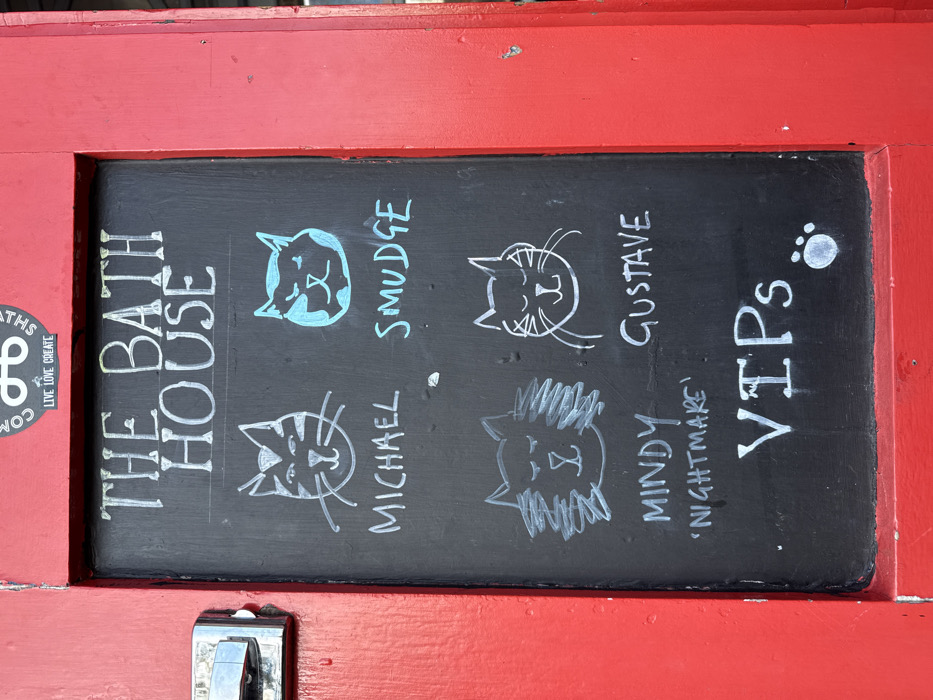 THE BATH
HOUSE
MICHAEL
SMUDGE
MINDY
'NIGHTMARE'
GUSTAVE
VIPs
LIVE LOVE CREATE